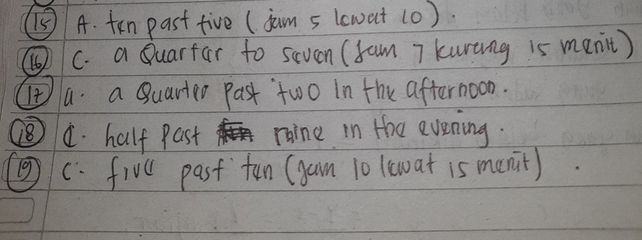 15 A. ten past five (jam 5 lewat 10).
16 C. a Quarter to seven (jam 7 kurang 15 menit)
17 a. a Quarter past two in the afternoon.
18 C. half past nine in the evening.
19 C. five past ten (jam 10 lewat 15 menit).